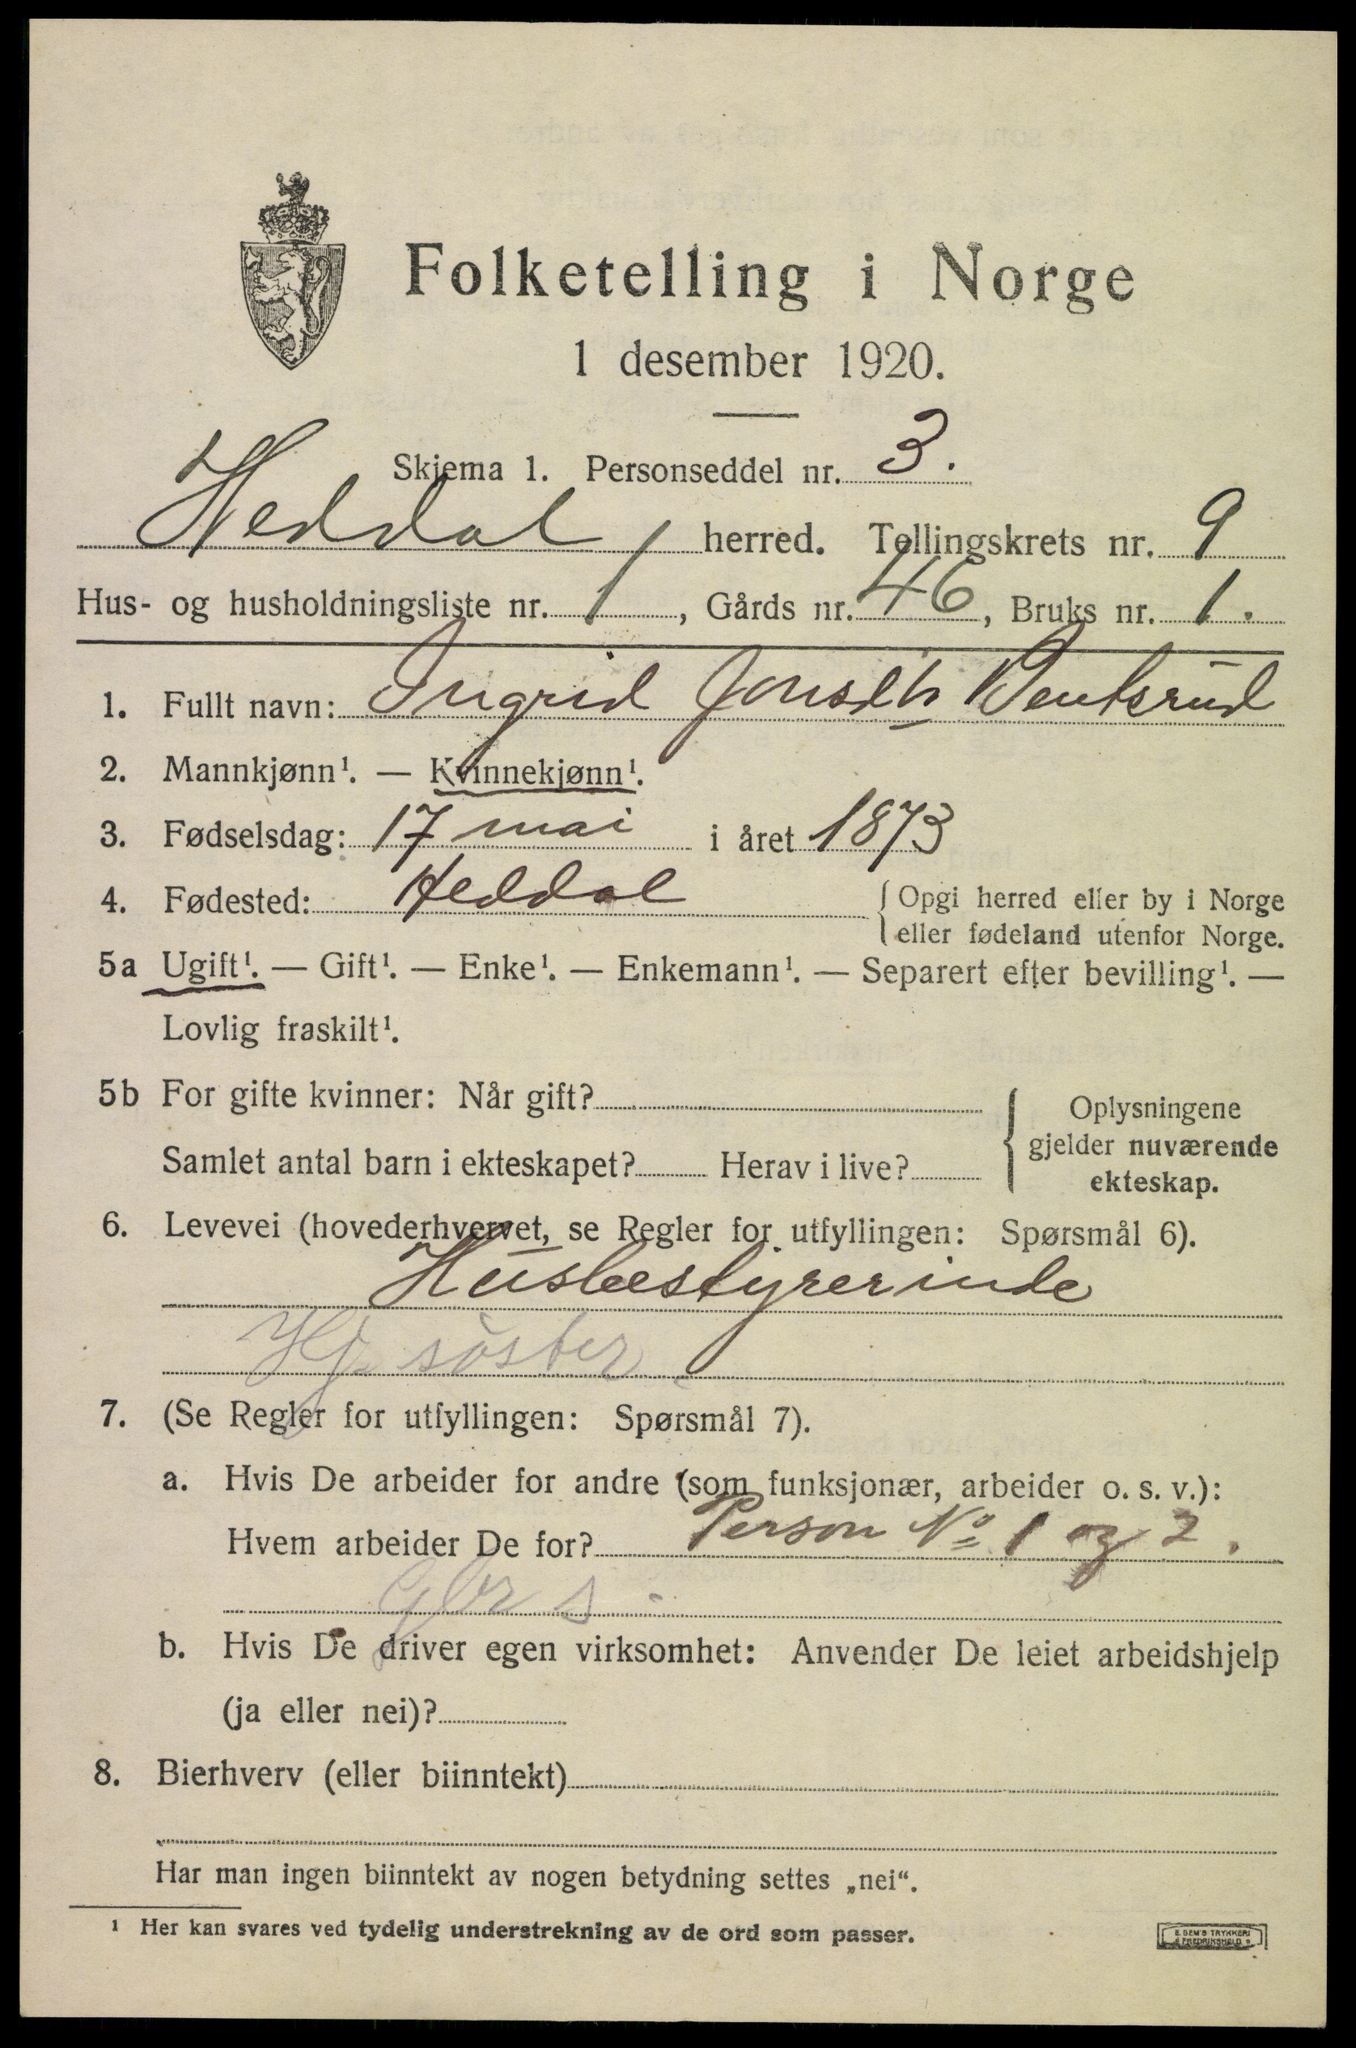 Folketelling i Norge
1 desember 1920.
Skjema 1. Personseddel nr. 3.
Heddal herred. Tellingskrets nr. 9
Hus- og husholdningsliste nr. 1, Gårds nr. 46, Bruks nr. 1.
1. Fullt navn: Ingrid Jonsdtr Bentsrud
2. Mannkjønn¹. — Kvinnekjønn¹.
3. Fødselsdag: 17 mai i året 1873
4. Fødested: Heddal {Opgi herred eller by i Norge
eller fødeland utenfor Norge.
5a Ugift¹. — Gift¹. — Enke¹. — Enkemann¹. — Separert efter bevilling¹. —
Lovlig fraskilt¹.
5b For gifte kvinner: Når gift?
Samlet antal barn i ekteskapet? Herav i live?
Oplysningene
gjelder nuværende
ekteskap.
6. Levevei (hovederhvervet, se Regler for utfyllingen: Spørsmål 6).
Husbestyrerinde
Hj. söster
7. (Se Regler for utfyllingen: Spørsmål 7).
a. Hvis De arbeider for andre (som funksjonær, arbeider o. s. v.):
Hvem arbeider De for? Person No 1 og 2.
Gbr s
b. Hvis De driver egen virksomhet: Anvender De leiet arbeidshjelp
(ja eller nei)?
8. Bierhverv (eller biinntekt)
Har man ingen biinntekt av nogen betydning settes „nei“.
¹ Her kan svares ved tydelig understrekning av de ord som passer.
E. SEM'S TRYKKERI
FREDRIKSHALD